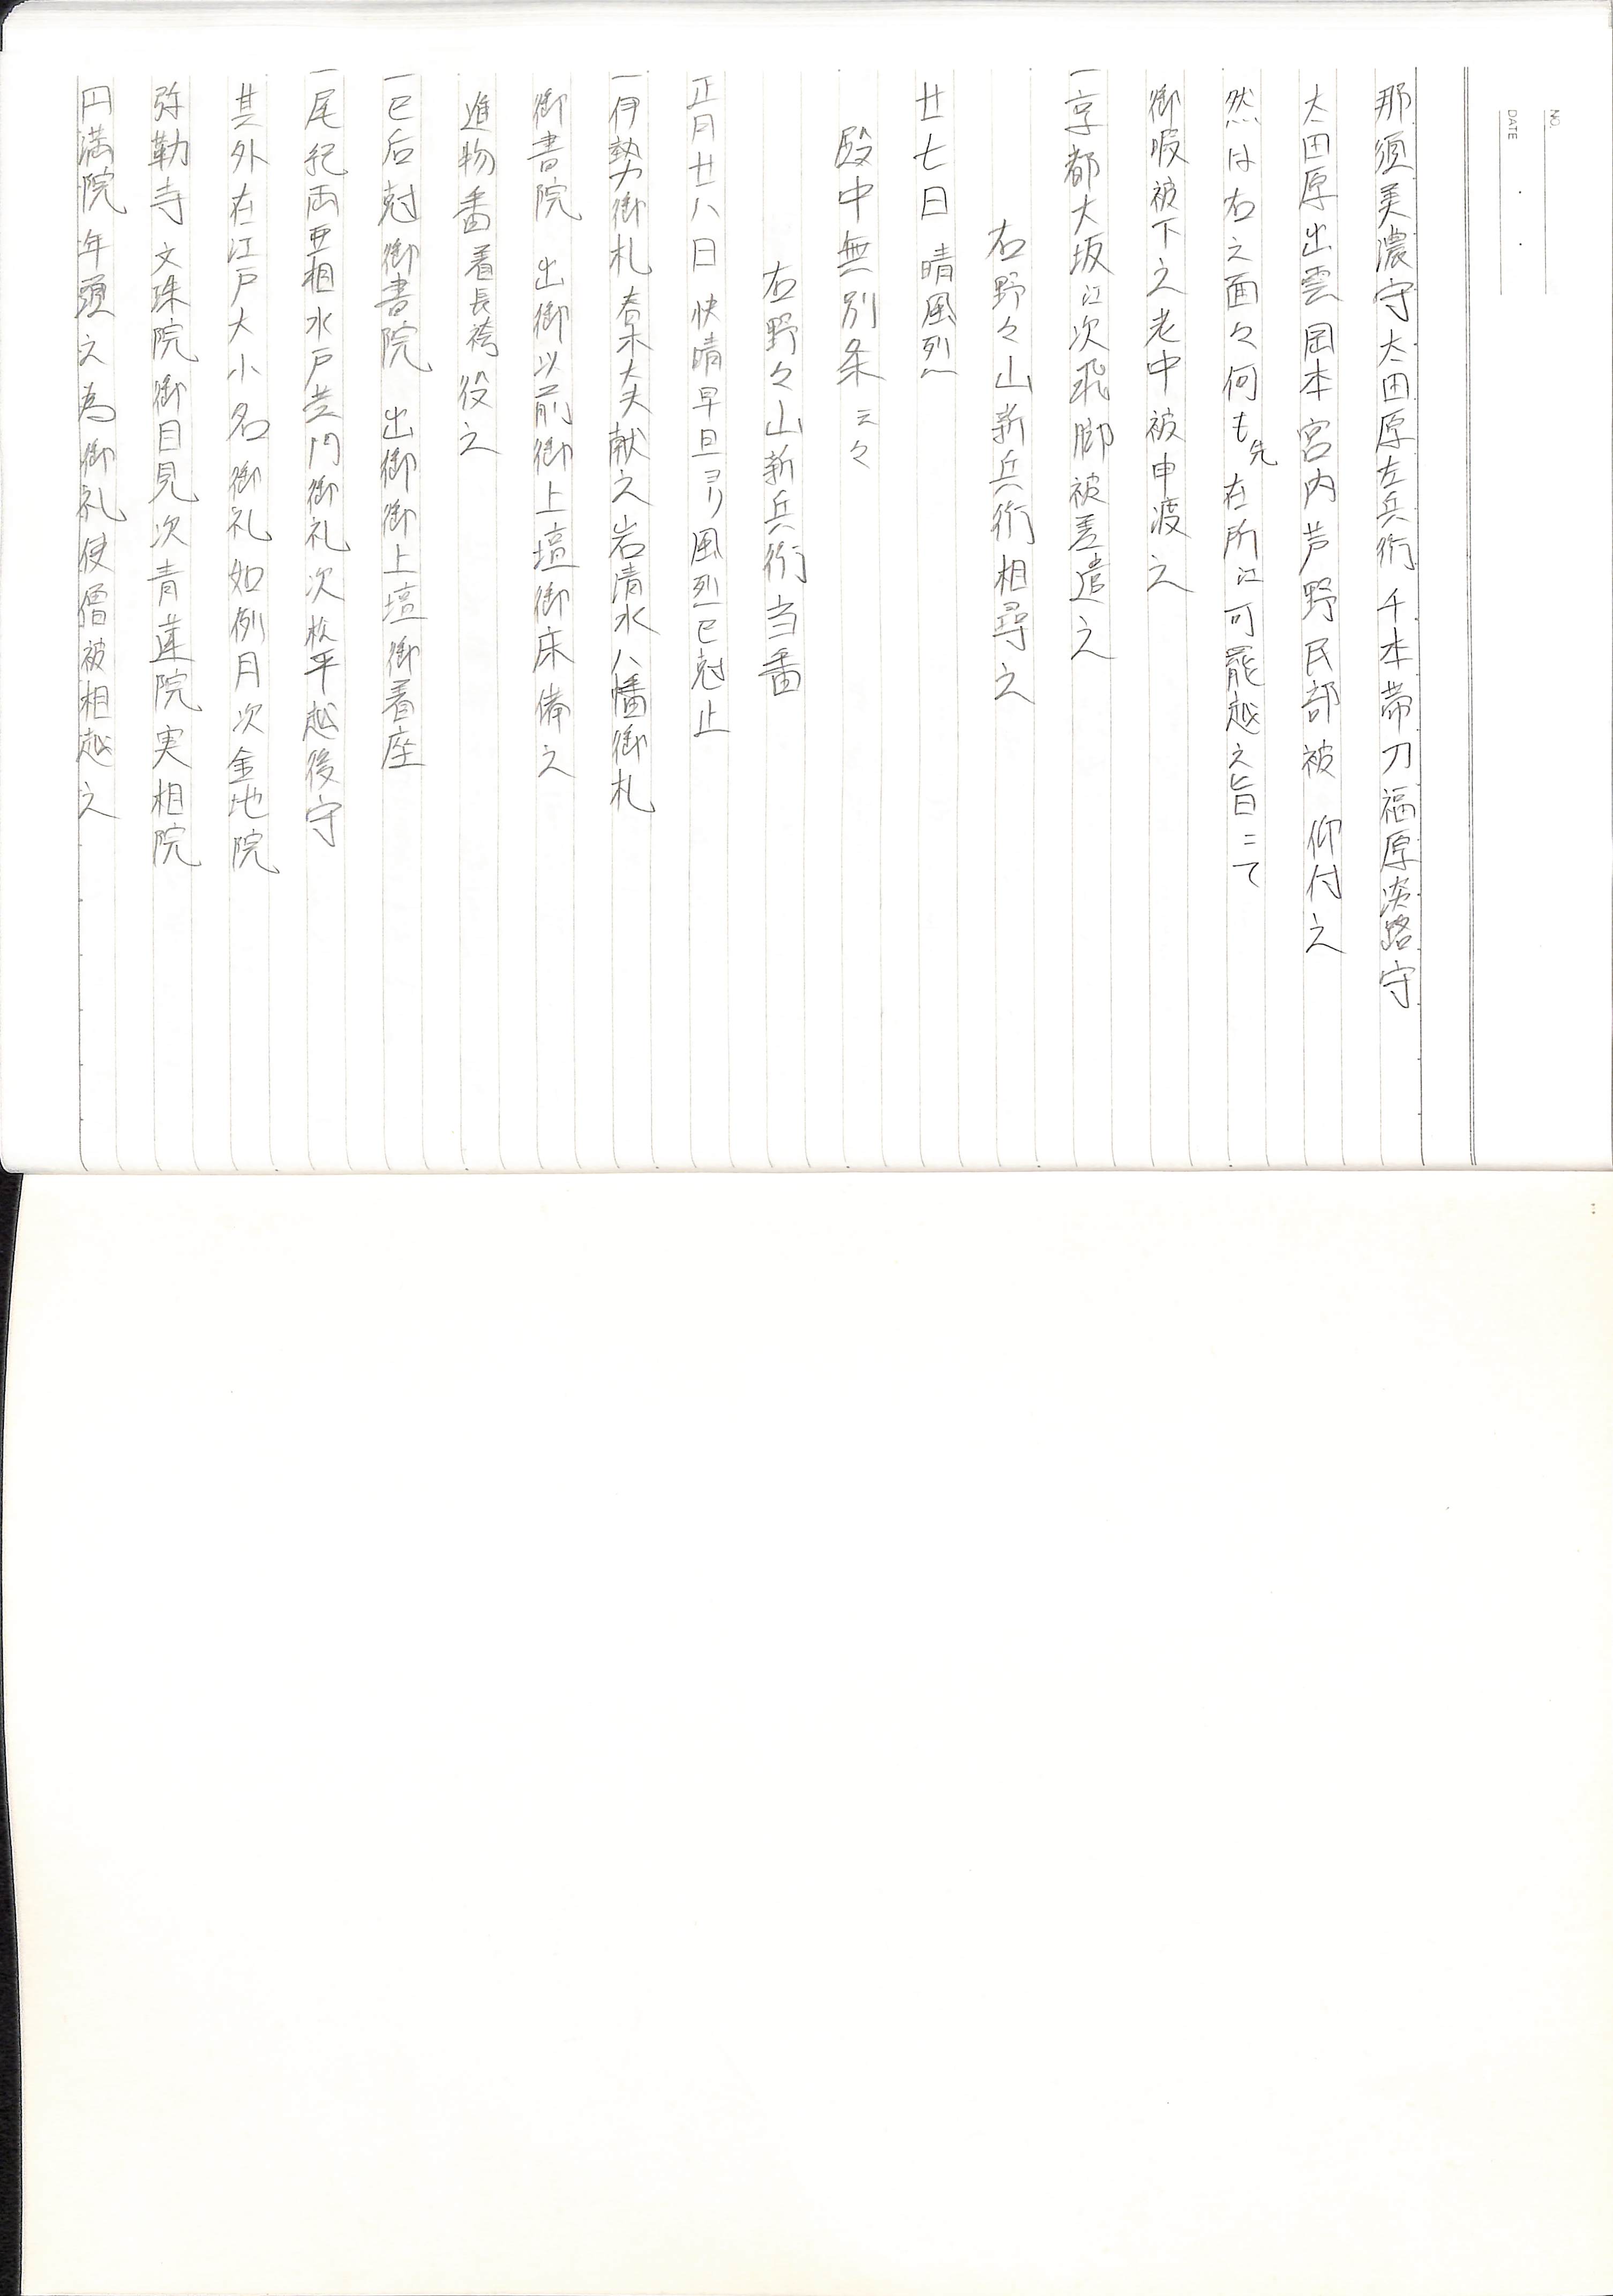 NO.
DATE
那須美濃守太田原左兵衛千本帯刀福原淡路守
大田原出雲岡本宮内芦野民部被 仰付之
然は右之面々何も先在所江可罷越之旨ニて
御暇被下之老中被申渡之
一京都大坂江次飛脚被差遣之
右野々山新兵衛相尋之
廿七日 晴風烈
殿中無別条云々
右野々山新兵衛当番
正月廿八日 快晴早旦ヨリ風烈巳尅止
一伊勢御札春木大夫献之岩清水八幡御札
御書院 出御以前御上壇御床備之
進物番着長袴役之
一巳后尅御書院 出御御上壇御着座
一尾紀両亜相水戸黄門御礼次松平越後守
其外在江戸大小名御礼如例月次金地院
弥勒寺文殊院御目見次青蓮院実相院
円満院年頭之為御礼使僧被相越之